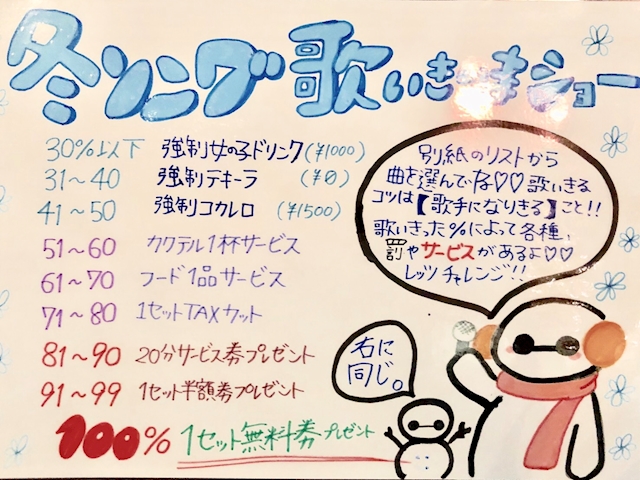 冬ソング歌いきっまショー
30%以下 強制女の子ドリンク(¥1000)
31~40 強制テキーラ (¥0)
41~50 強制コカレロ (¥1500)
51~60 カクテル1杯サービス
61~70 フード1品サービス
71~80 1セットTAXカット
81~90 20分サービス券プレゼント
91~99 1セット半額券プレゼント
100% 1セット無料券プレゼント
別紙のリストから
曲を選んでな♡♡歌いきる
コツは【歌手になりきる】こと!!
歌いきった%によって各種、
罰やサービスがあるよ♡♡
レッツチャレンジ!!
右に
同じ。